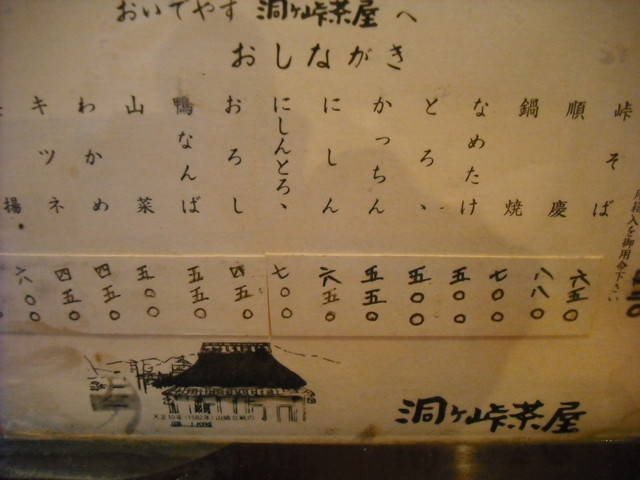 おいでやす 洞ヶ峠茶屋 へ
おしながき
峠そば
順慶
鍋焼
なめたけ
とろゝ
かっちん
にしん
にしんとろゝ
おろし
鴨なんば
山菜
わかめ
キツネ
揚
六五〇
八八〇
七〇〇
五〇〇
五〇〇
五五〇
六五〇
七〇〇
四五〇
五五〇
五〇〇
四五〇
四五〇
六〇〇
を御用命下さい
洞ヶ峠茶屋